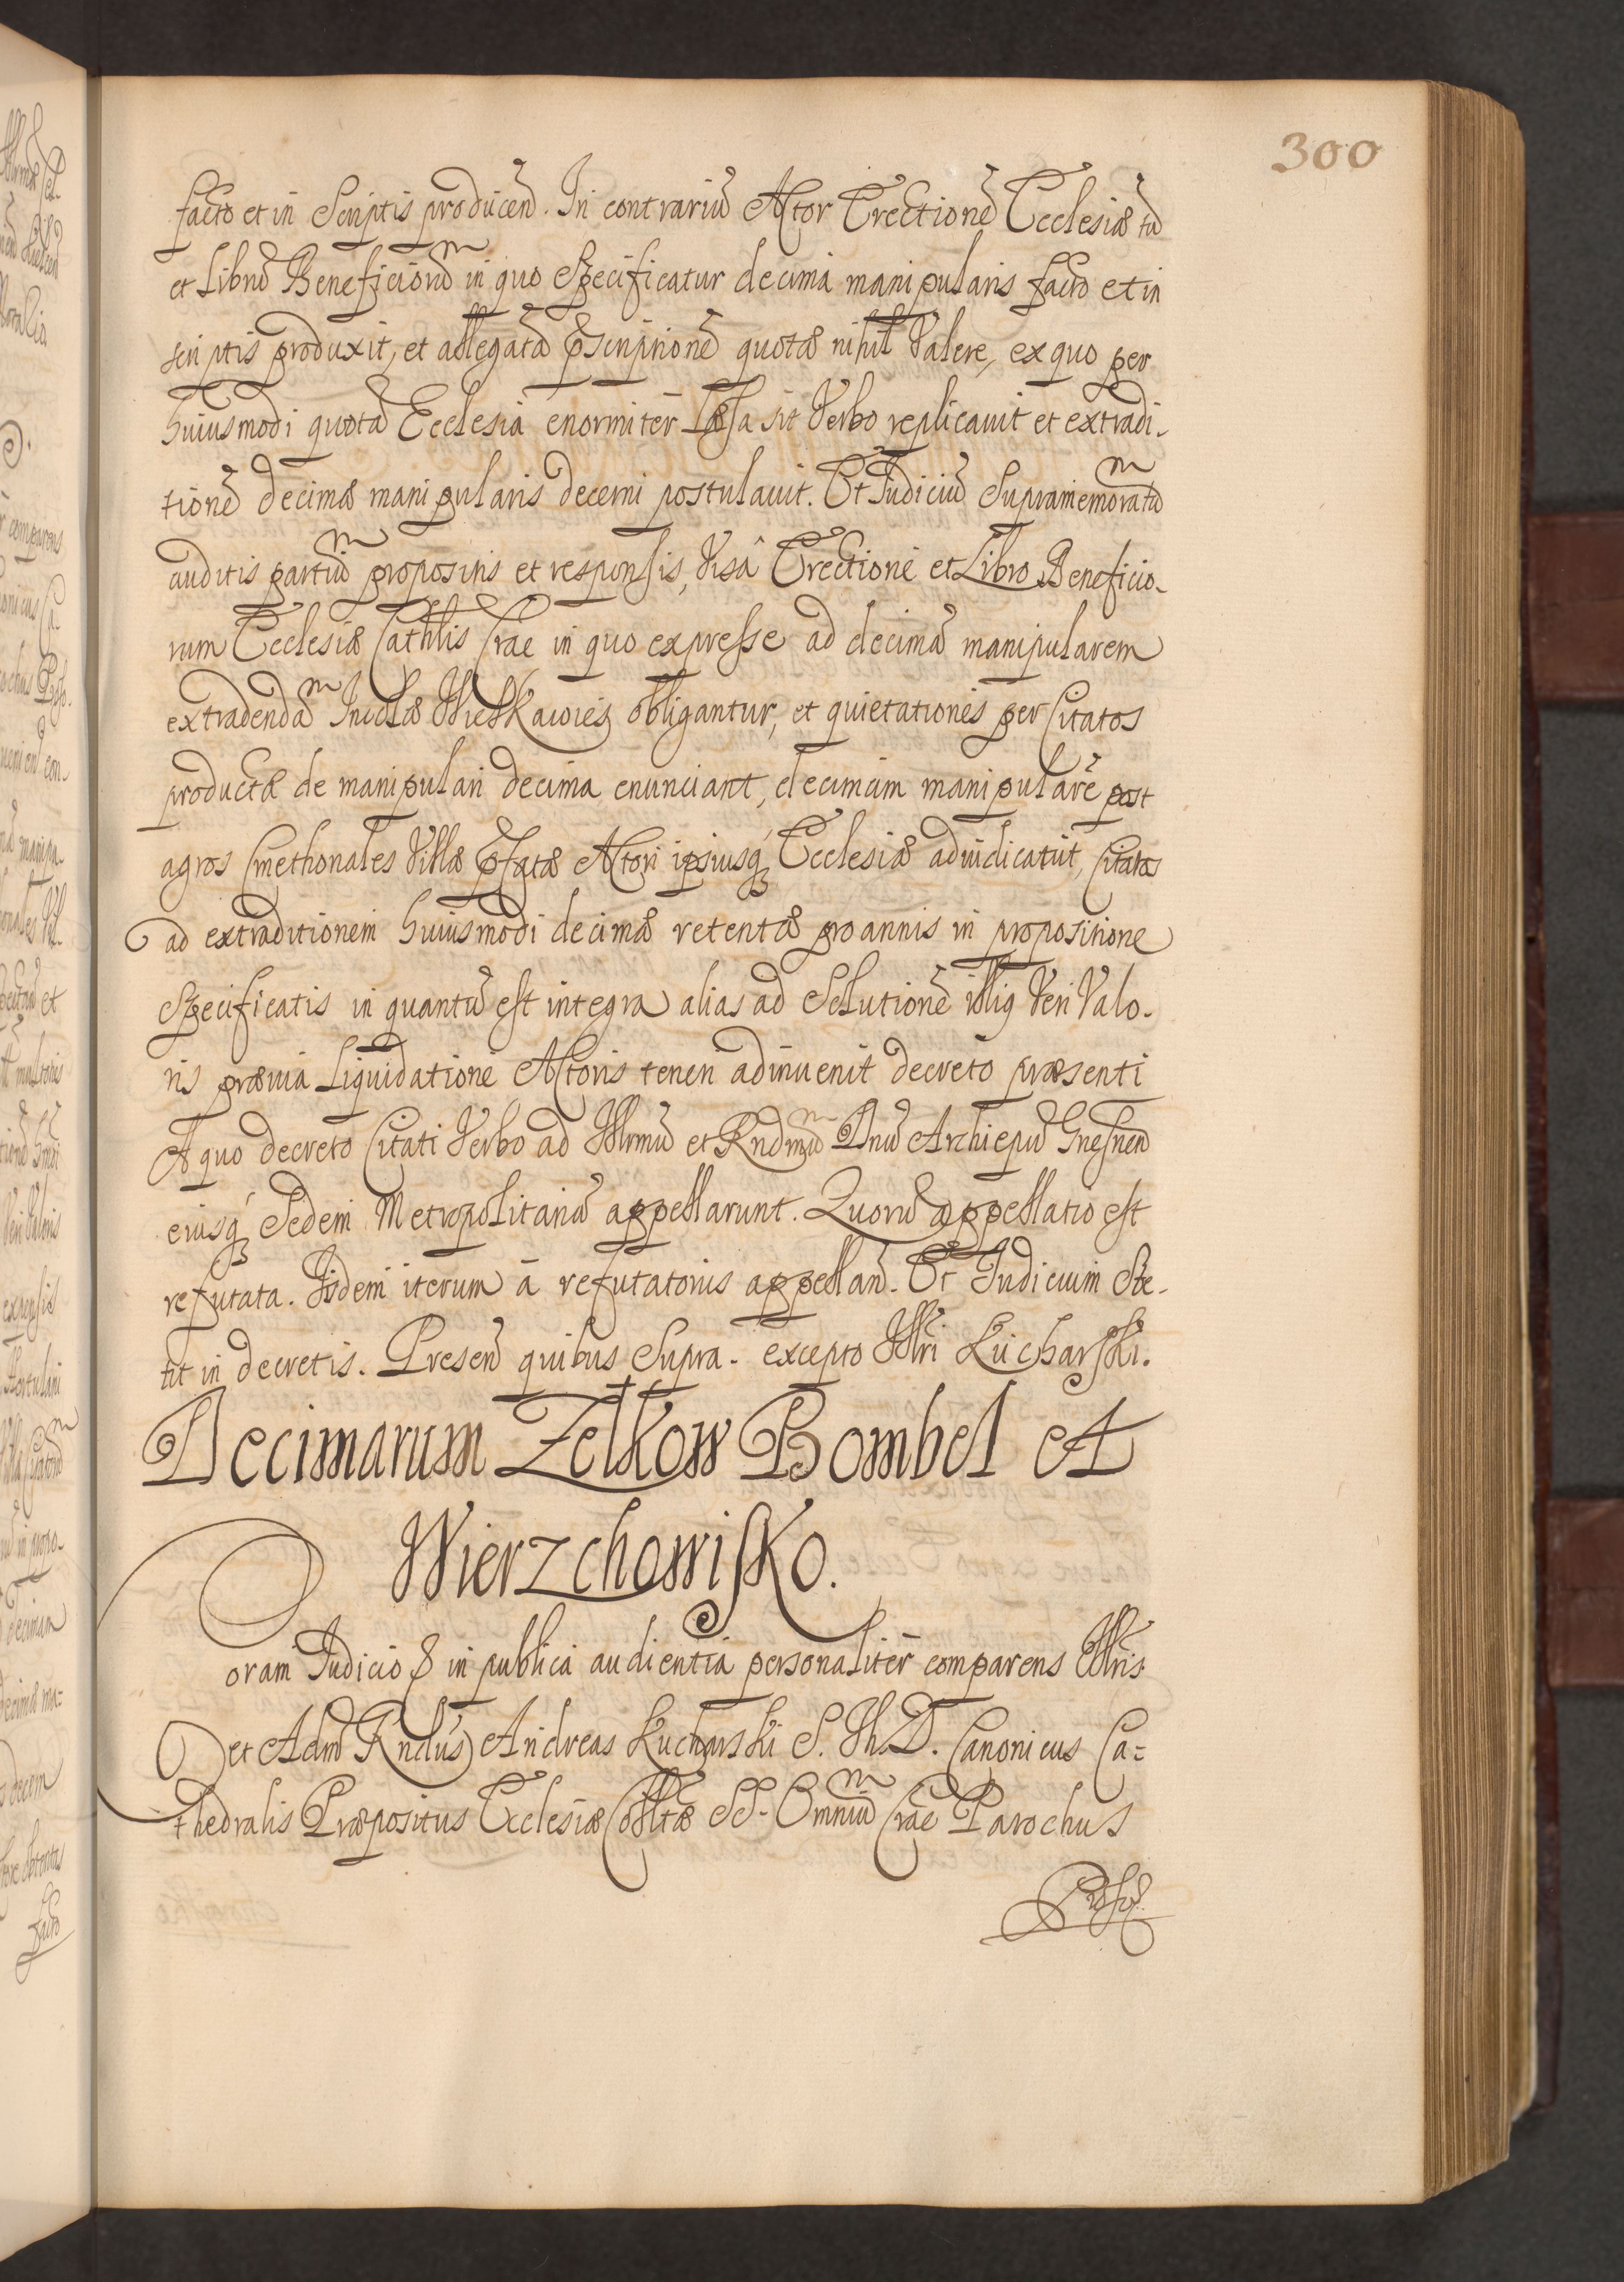 300
facto et in Scriptis producen̄. In contrariū Actor Erectionē Ecclesiæ tū
et Librū Beneficiorū in quo Specificatur decima manipularis facto et in
scriptis produxit, et allegatā p̄scriptionē quotæ nihil Valere, ex quo per
huiusmodi quotā Ecclesia enormitèr Læsa sit Verbo replicauit et extradi-
tionē decimæ manipularis decerni postulauit. Et Iudiciū Supramemoratū
auditis partiū propositis et responsis, Visâ Erectione et Libro Beneficio-
rum Ecclesiæ Cathlis Crac in quo expresse ad decimā manipularem
extradendā Incolæ obligantur, et quietationes per Citatos
productæ de manipulari decima enunciant, decimam manipularē post
agros Cmethonales Villæ p̄fatæ Actori ipsiusq́ Ecclesiæ adiudicauit, Citatos
ad extraditionem huiusmodi decimæ retentæ pro annis in propositione
Specificatis in quantū est integra alias ad Solutionē illiq Veri Valo-
ris præuia Liquidatione Actoris teneri adinuenit decreto præsenti
A quo decreto Citati Verbo ad Illrmū et Rndmū Dnū Archiepū Gnesnen̄
eiusq́ Sedem Metropolitanā appellarunt. Quorū appellatio est
refutata. Iisdem iterum à refutatoriis appellan̄. Et Iudicium Ste-
tit in decretis. Presen̄ quibus Supra. excepto Illri Kucharski.
Decimarum Zelkow Bombel et
Wierzchowisko.
Coram Iudicio & in publica audientia personalitèr comparens Illris
et Adm̄ Rndus Andreas Kucharski S. Th. D. Canonicus Ca=
thedralis Præpositus Ecclesiæ Colltæ SS. Omniū Crac Parochus